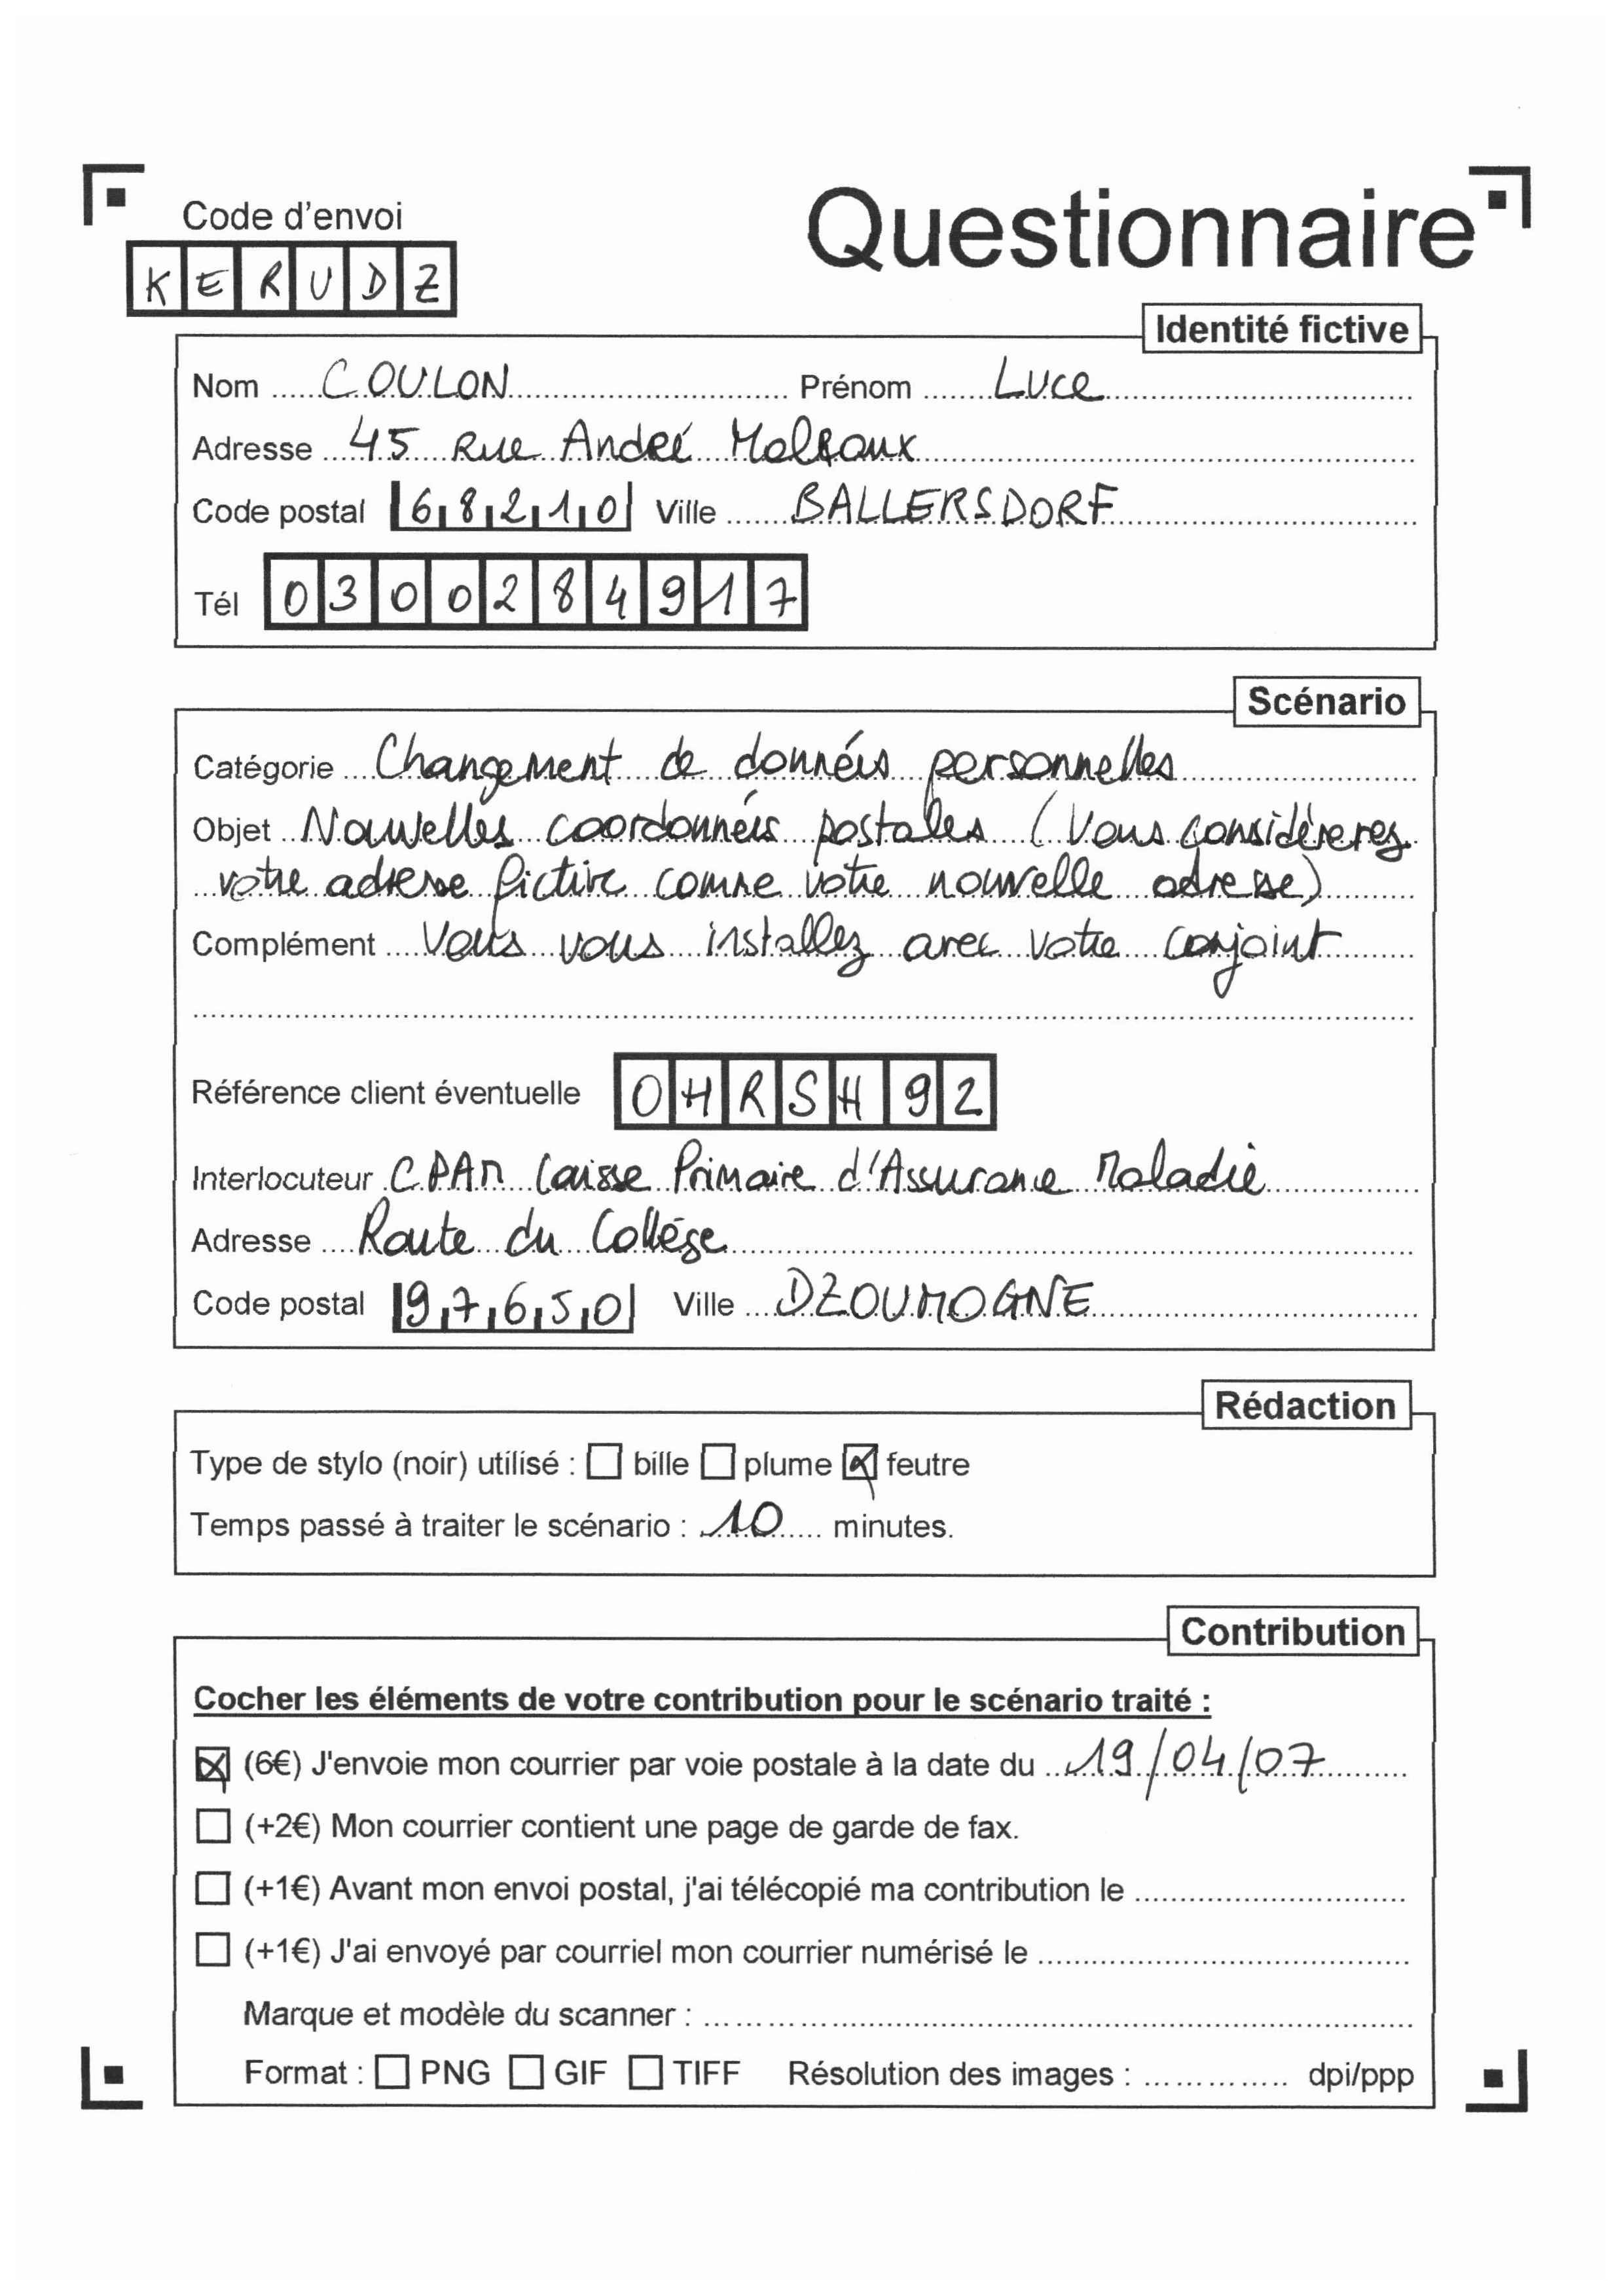 Code d'envoi
Questionnaire
KERUDZ
Identité fictive
Nom COULON Prénom Luce
Adresse 45 Rue André Malraux
Code postal 68210 Ville BALLERSDORF
Tél 0300284917
Scénario
Catégorie Changement de données personnelles
Objet Nouvelles coordonnées postales (Vous considèrerez
votre adresse fictive comme votre nouvelle adresse)
Complément Vous vous installez avec votre conjoint
Référence client éventuelle OHRSH92
Interlocuteur CPAM Caisse Primaire d'Assurance Maladie
Adresse Route du Collège
Code postal 97650 Ville DZOUMOGNE
Rédaction
Type de stylo (noir) utilisé : ☐ bille ☐ plume ☒ feutre
Temps passé à traiter le scénario : 10 minutes.
Contribution
Cocher les éléments de votre contribution pour le scénario traité :
☒ (6€) J'envoie mon courrier par voie postale à la date du 19/04/07
☐ (+2€) Mon courrier contient une page de garde de fax.
☐ (+1€) Avant mon envoi postal, j'ai télécopié ma contribution le
☐ (+1€) J'ai envoyé par courriel mon courrier numérisé le
Marque et modèle du scanner :
Format : ☐ PNG ☐ GIF ☐ TIFF Résolution des images : dpi/ppp